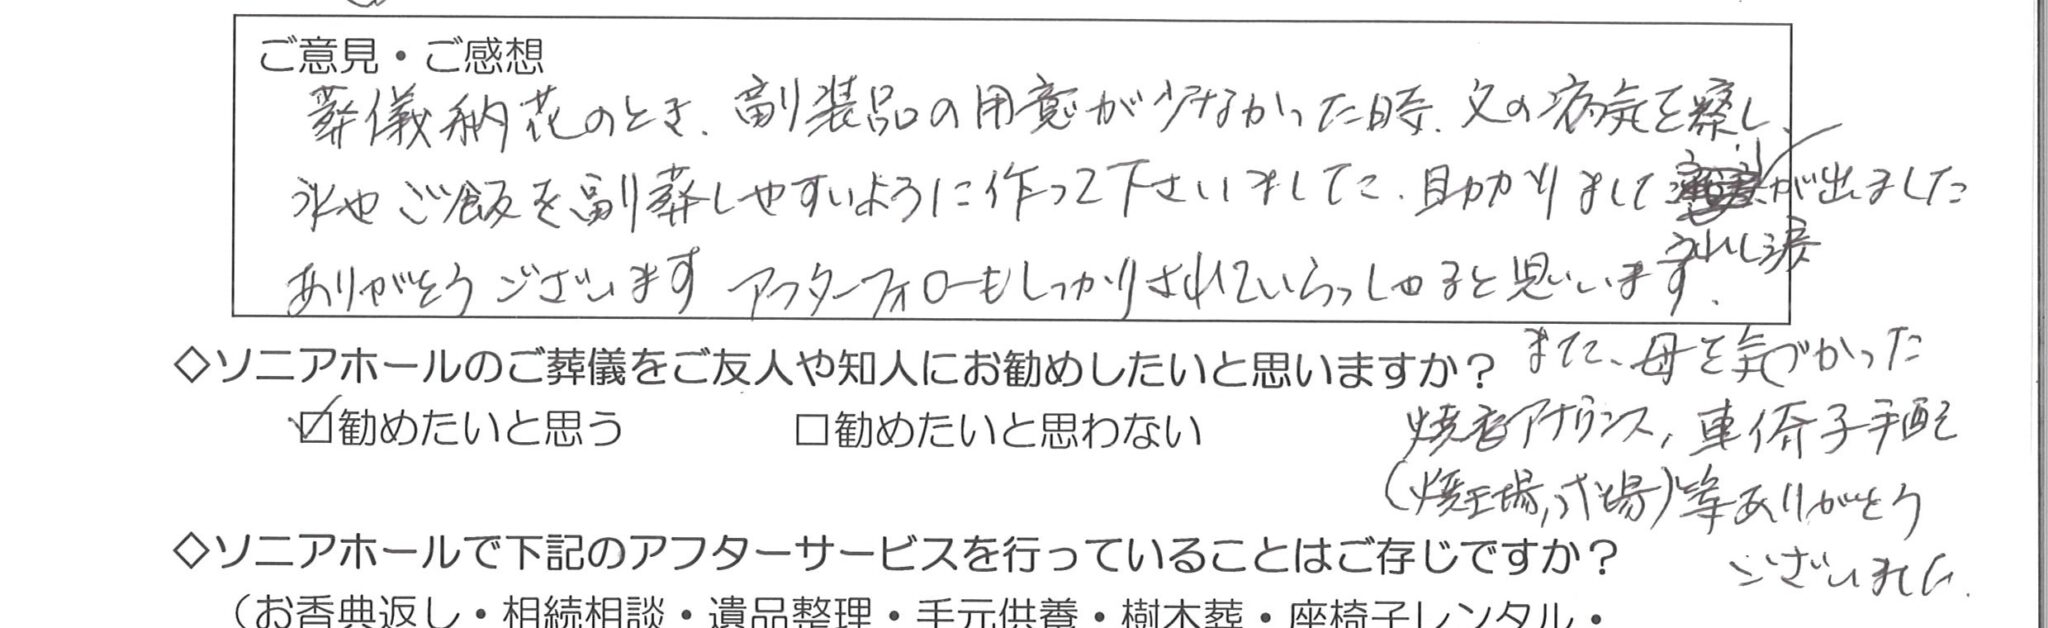 ご意見・ご感想
葬儀納花のとき、副装品の用意が少なかった時、父の病気を察し、
氷やご飯を副葬しやすいように作って下さいまして、助かりまして が出ました
うれし涙
ありがとうございます アフターフォローもしっかりされていらっしゃると思います。
◇ソニアホールのご葬儀をご友人や知人にお勧めしたいと思いますか?
また、母を気づかった
☑勧めたいと思う □勧めたいと思わない
焼香アナウンス、車イス 手配
(焼 場、式場)等ありがとう
ございました。
◇ソニアホールで下記のアフターサービスを行っていることはご存じですか?
(お香典返し・相続相談・遺品整理・手元供養・樹木葬・座椅子レンタル・